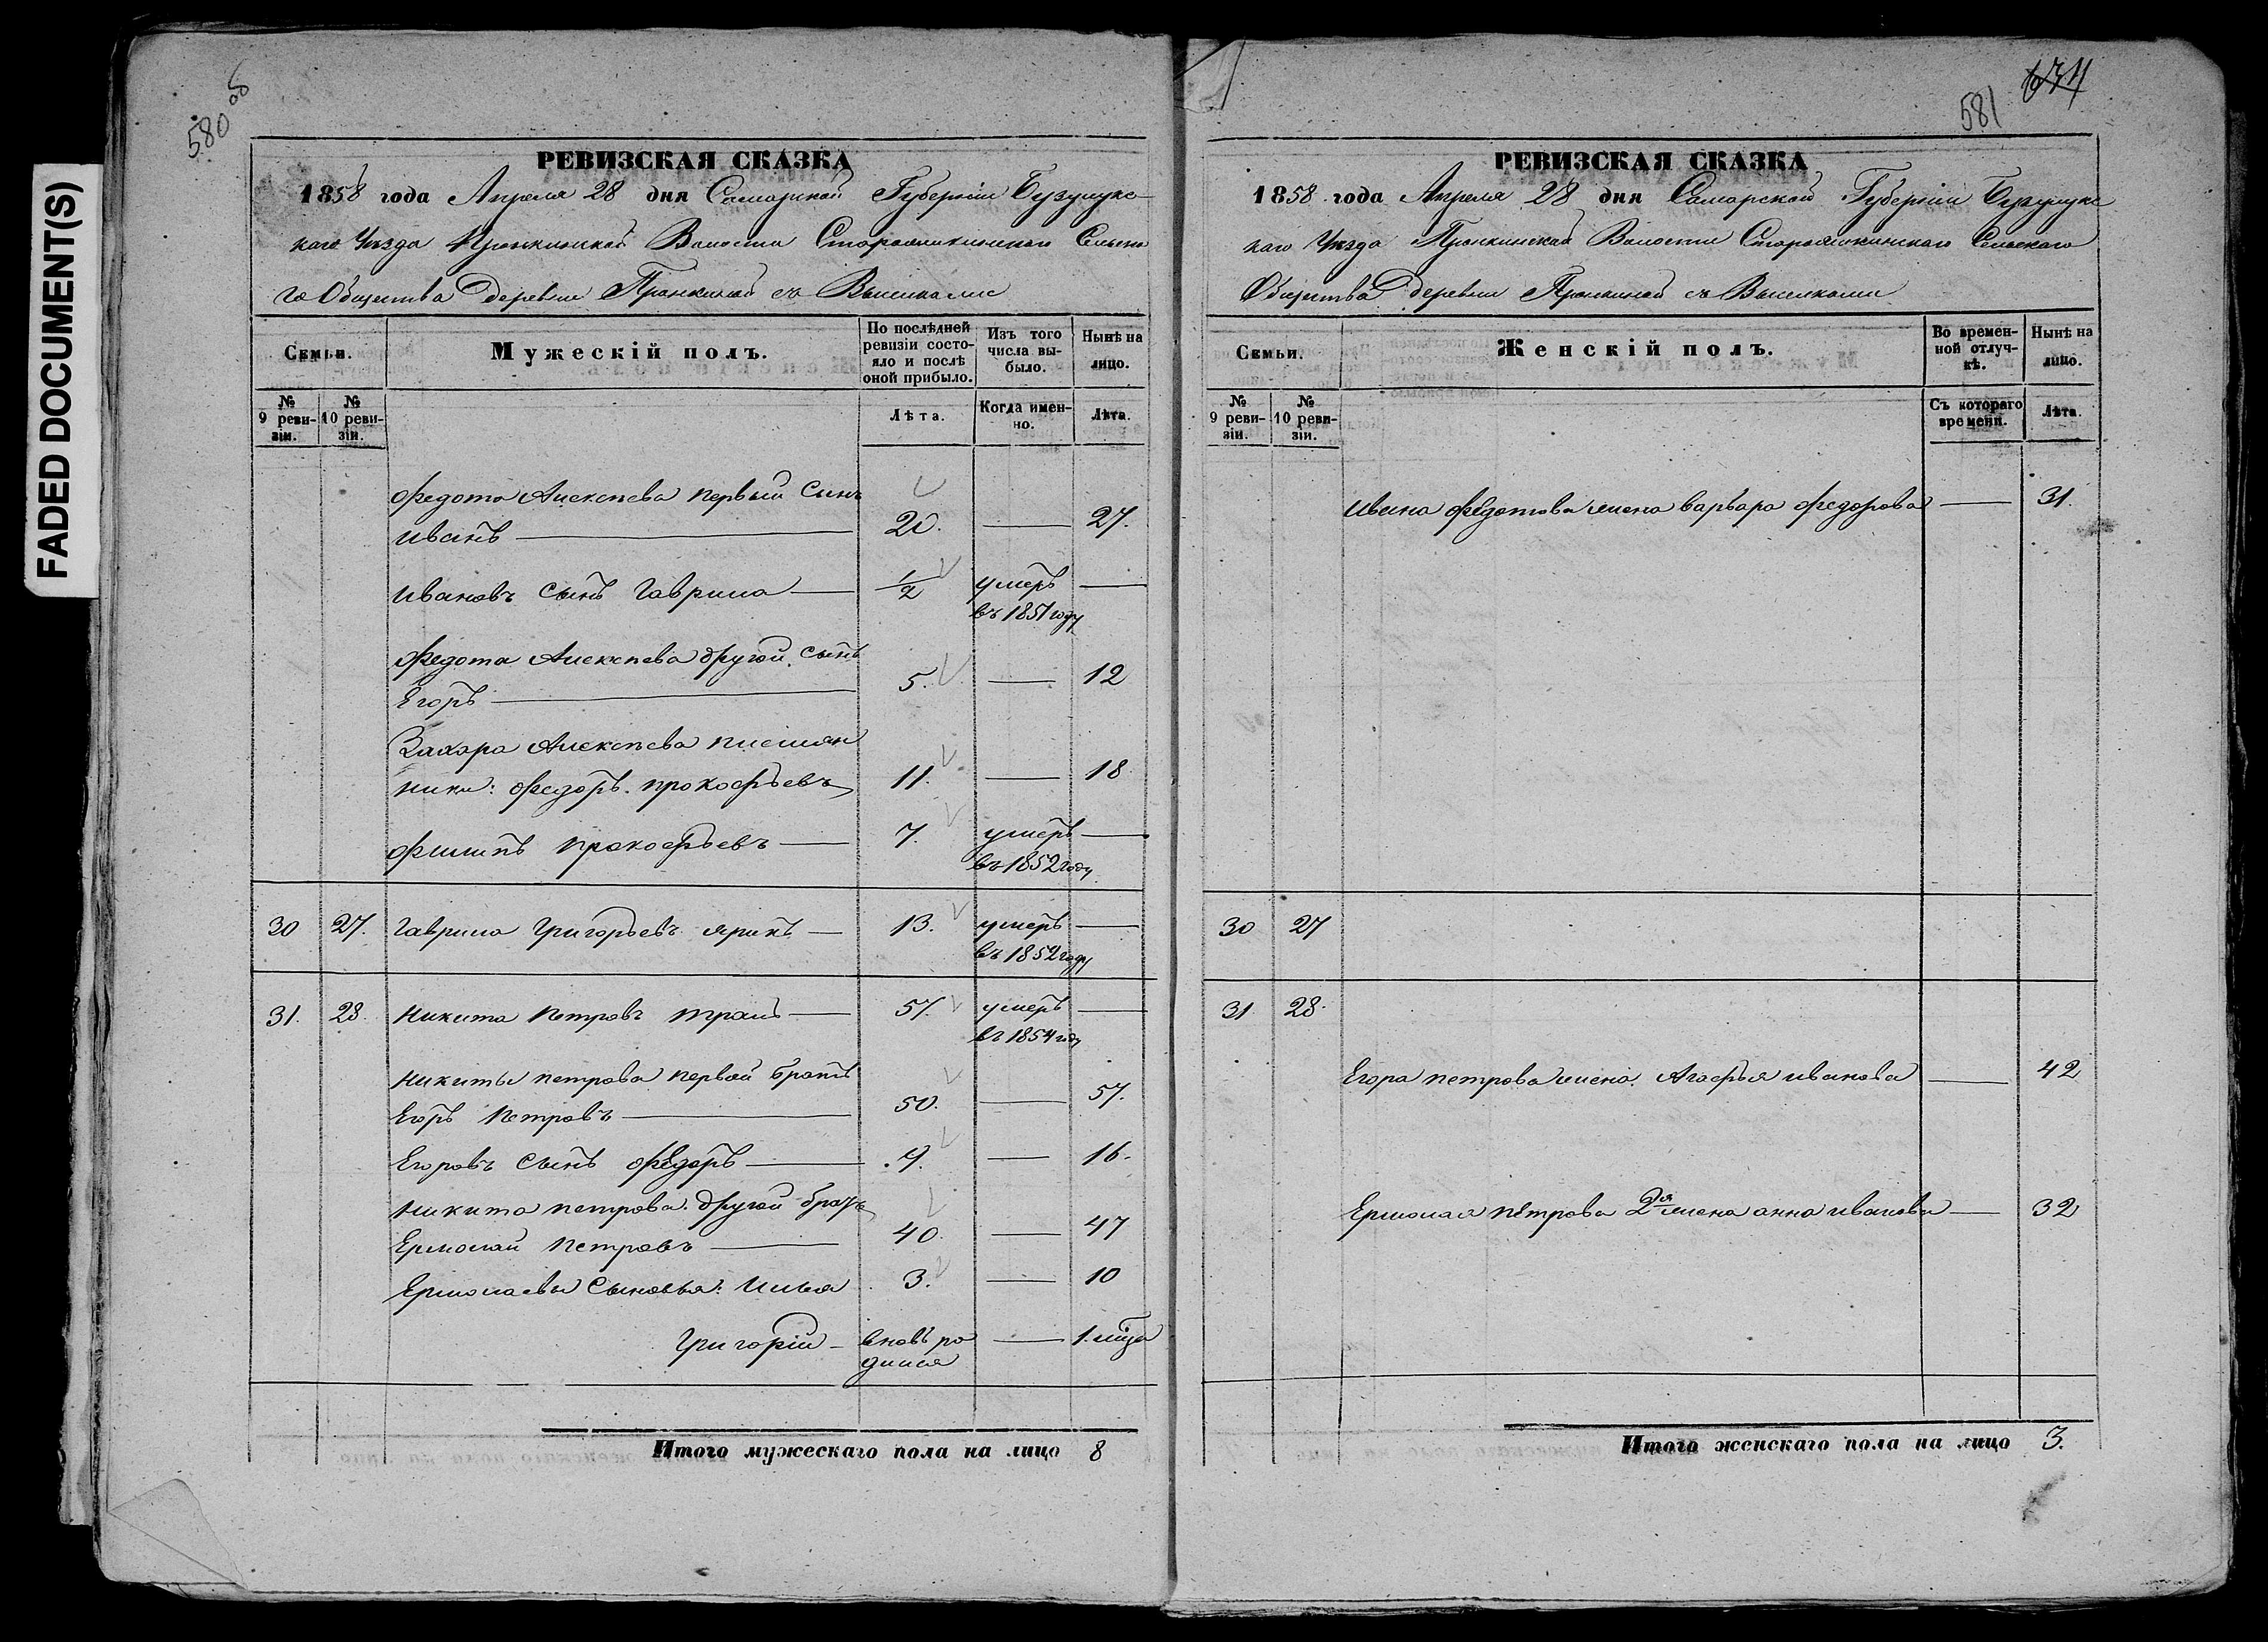 FADED DOCUMENT(S)
580 об
РЕВИЗСКАЯ СКАЗКА
1858 года Апреля 28 дня Самарской Губернiи Бузулукс-
каго Уѣзда Пронкинской Волости Старо Селька
го Общества деревни Пронкиной съ Выселками
Семьи.
Мужескiй полъ.
По послѣдней ревизiи состо-
яло и послѣ
оной прибыло.
Изъ того
числа вы-
было.
Нынѣ на
лицо.
№
9 реви-
зiи.
№
10 реви-
зiи.
Лѣта.
Когда имен-
но.
Лѣта.
Федота Алексѣева первый Сынъ
Иванъ — 20. — 27.
Ивановъ Сынъ Гаврила — 1/2 умеръ —
въ 1851 году
Федота Алексѣева другой Сынъ
Егоръ — 5. — 12
Захара Алексѣева племян
ники: Федоръ Прокофьевъ 11. — 18
Филипъ Прокофьевъ — 7. умеръ —
въ 1852 году
30 27. Гаврила Григорьевъ — 13. умеръ —
въ 1852 году
31. 28. Никита Петровъ — 57. умеръ —
въ 1854 году
Никиты Петрова первой братъ
Егоръ Петровъ — 50. — 57.
Егоровъ Сынъ Федоръ — 9. — 16.
Никита Петрова другой братъ
Ермолай Петровъ — 40. — 47
Ермолаевы Сыновья: Илья 3. — 10
Григорiй — вновь ро — 1.
дился
Итого мужескаго пола на лицо 8
634
581
РЕВИЗСКАЯ СКАЗКА
1858 года Апреля 28 дня Самарской Губернiи Бузулукс
каго Уѣзда Пронкинской Волости Сельскаго
Общества деревни Пронкиной съ Выселками
Семьи.
Женскiй полъ.
Во времен-
ной отлуч-
кѣ.
Нынѣ на
лицо.
№
9 реви-
зiи.
№
10 реви-
зiи.
Съ котораго
времени.
Лѣта.
Ивана Федотова жена Варвара Федорова — 31.
30 27
31 28.
Егора Петрова жена Агафья Иванова — 42
Ермолая Петрова 2я жена Анна Иванова — 32
Итого женскаго пола на лицо 3.